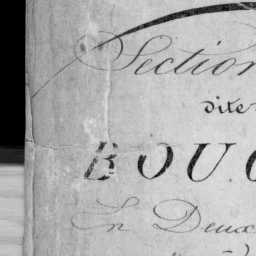 Section
dite
BOU
En Deux